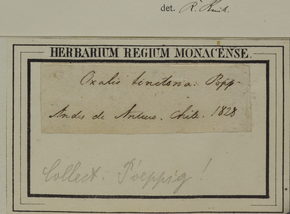 det. R. Knuth
HERBARIUM REGIUM MONACENSE.
Oxalis Popp.
Andes de Antuco. Chile. 1828
Collect: Poeppig!